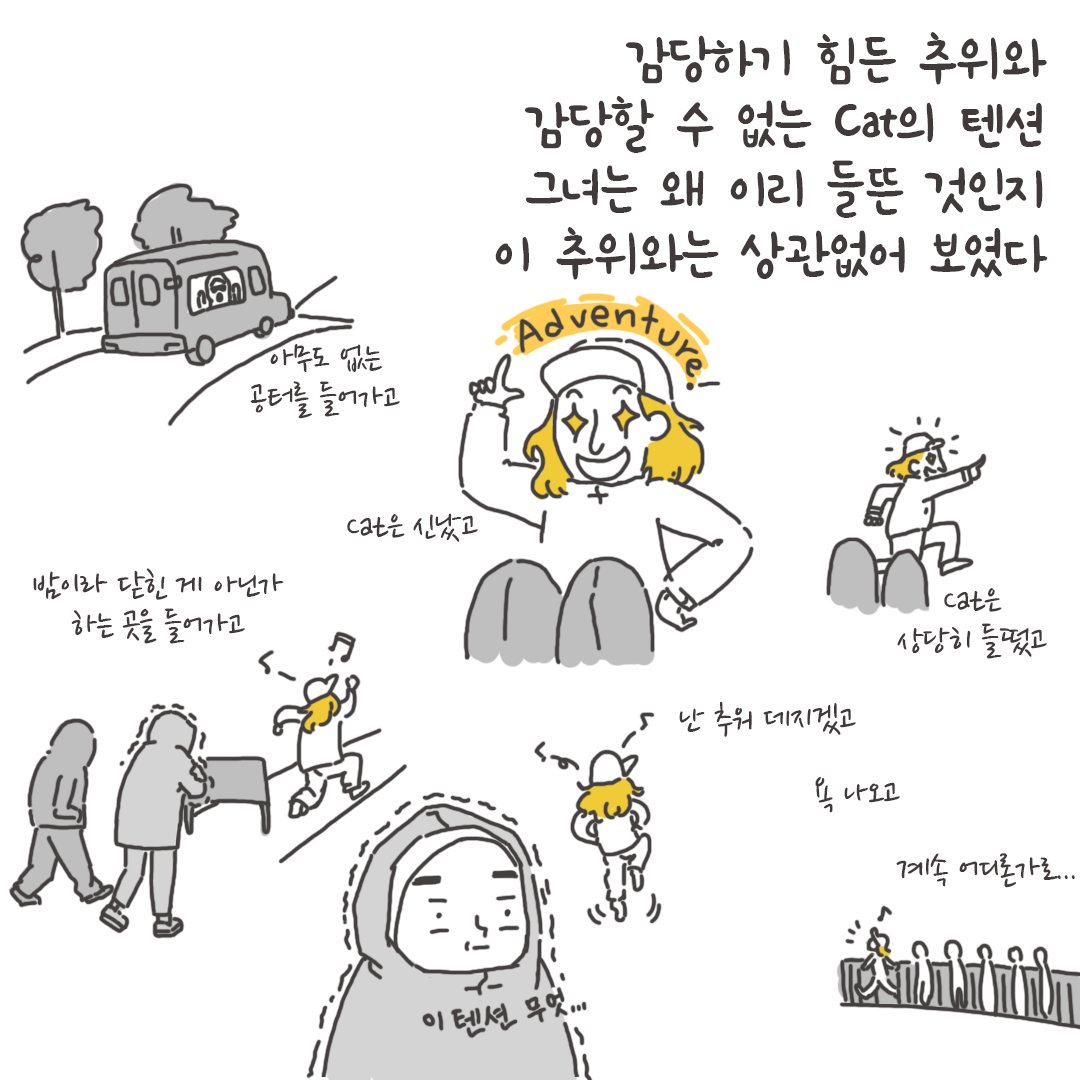 감당하기 힘든 추위와
감당할 수 없는 Cat의 텐션
그녀는 왜 이리 들뜬 것인지
이 추위와는 상관없어 보였다
Adventure.
아무도 없는
공터를 들어가고
cat은 신났고
cat은
상당히 들떴고
밤이라 닫힌 게 아닌가
하는 곳을 들어가고
난 추워 데지겠고
욕 나오고
계속 어디론가로...
이 텐션 무엇...